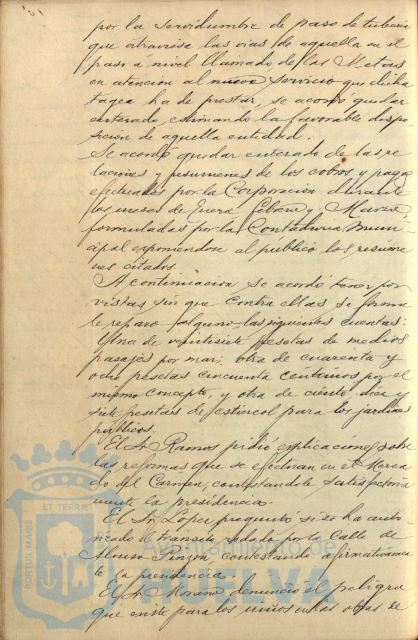 por la servidumbre de paso de tubería
que atraviesa las vias de aquella en el
paso a nivel llamado de las Metas
en atencion al nuevo servicio que dicha
ha de prestar, se acordó quedar
enterado, estimando la favorable dispo
sición de aquella entidad.
Se acordó quedar enterado de las re
laciones y resumenes de los cobros y pagos
efectuados por la Corporación durante
los meses de Enero Febrero y Marzo
formuladas por la Contaduria Muni
cipal exponiendose al publico los resume
nes citados.
A continuacion se acordó tener por
vistas sin que contra ellas se formu
le reparo alguno las siguientes cuentas:
Una de veintisiete pesetas de medios
pasajes por mar; otra de cuarenta y
ocho pesetas cincuenta centimos por el
mismo concepto, y otra de ciento diez y
siete pesetas de estiercol para los jardines
publicos.
El Sr. Ramos pidió explicaciones sobre
las reformas que se efectuan en el Merca
do del Carmen, contestandole satisfactoria
mente la presidencia.
El Sr. Lopez preguntó si se ha auto
rizado el transito rodado por la Calle de
Alonso Pinzón contestando afirmativamen
te la presidencia.
El Sr. Moreno denunció el peligro
que existe para los niños en las obras de
PORTUS MARIS ET TERRAE
Ayuntamiento de
HUELVA